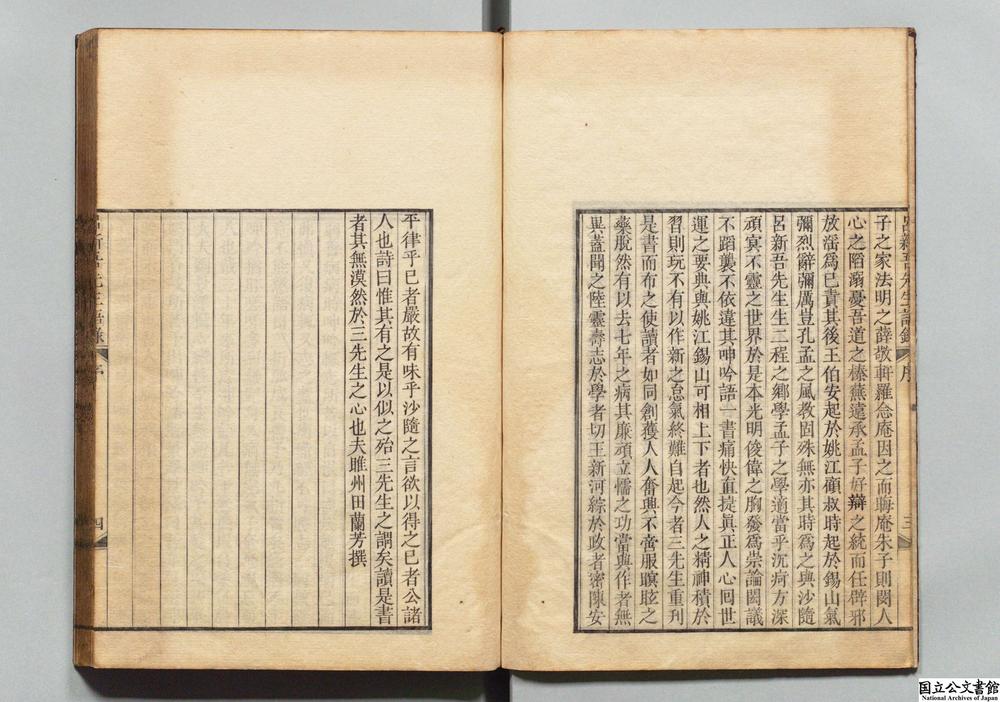 呂新吾先生語錄 序 三
子之家法明之薛敬軒羅念庵因之而晦庵朱子則閔人
心之陷溺憂吾道之榛蕪遠承孟子好辯之統而任辟邪
放滛爲已責其後王伯安起於姚江顧叔時起於錫山氣
彌烈辭彌厲豈孔孟之風教固殊無亦其時爲之與沙隨
呂新吾先生生二程之鄉學孟子之學適當乎沉痾方深
頑冥不靈之世界於是本光明俊偉之胸發爲崇論閎議
不蹈襲不依違其呻吟語一書痛快直㨗眞正人心囘世
運之要典與姚江錫山可相上下者也然人之精神積於
習則玩不有以作新之怠氣終難自起今者三先生重刊
是書而布之使讀者如同創獲人人奮興不啻服瞑眩之
藥脫然有以去七年之病其廉頑立懦之功當與作者無
異蓋聞之陸靈壽志於學者切王新河綜於政者密陳安
平律乎已者嚴故有味乎沙隨之言欲以得之已者公諸
人也詩曰惟其有之是以似之殆三先生之謂矣讀是書
者其無漠然於三先生之心也夫睢州田蘭芳撰
呂新吾先生語錄 序 四
国立公文書館
National Archives of Japan